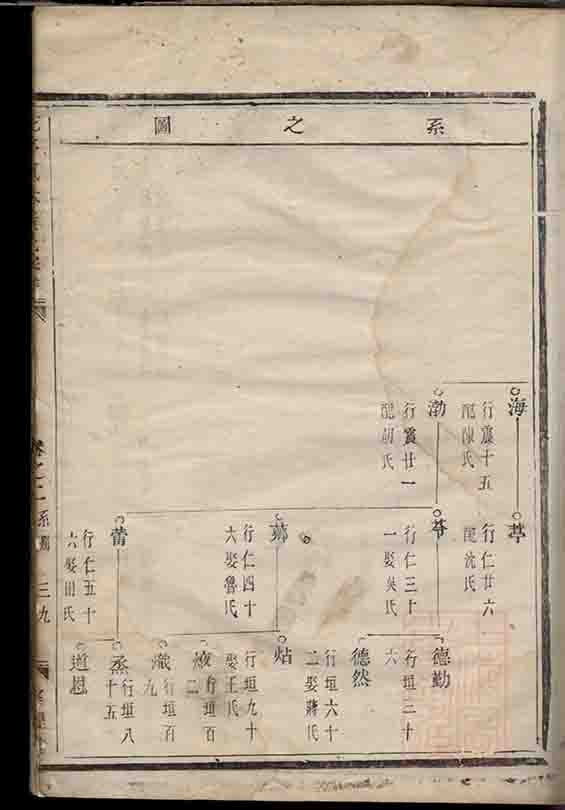 系之圖
海
行震十五
配陳氏
渤
行震廿一
配胡氏
行仁廿六
配沈氏
行仁三十
一娶吳氏
行仁四十
六娶魯氏
行仁五十
六娶田氏
德勤
行垣二十
六
德然
行垣六十
二娶蔣氏
炶
行垣九十
娶王氏
行垣百
二
熾
行垣百
九
烝
行垣八
十五
道恩
三九